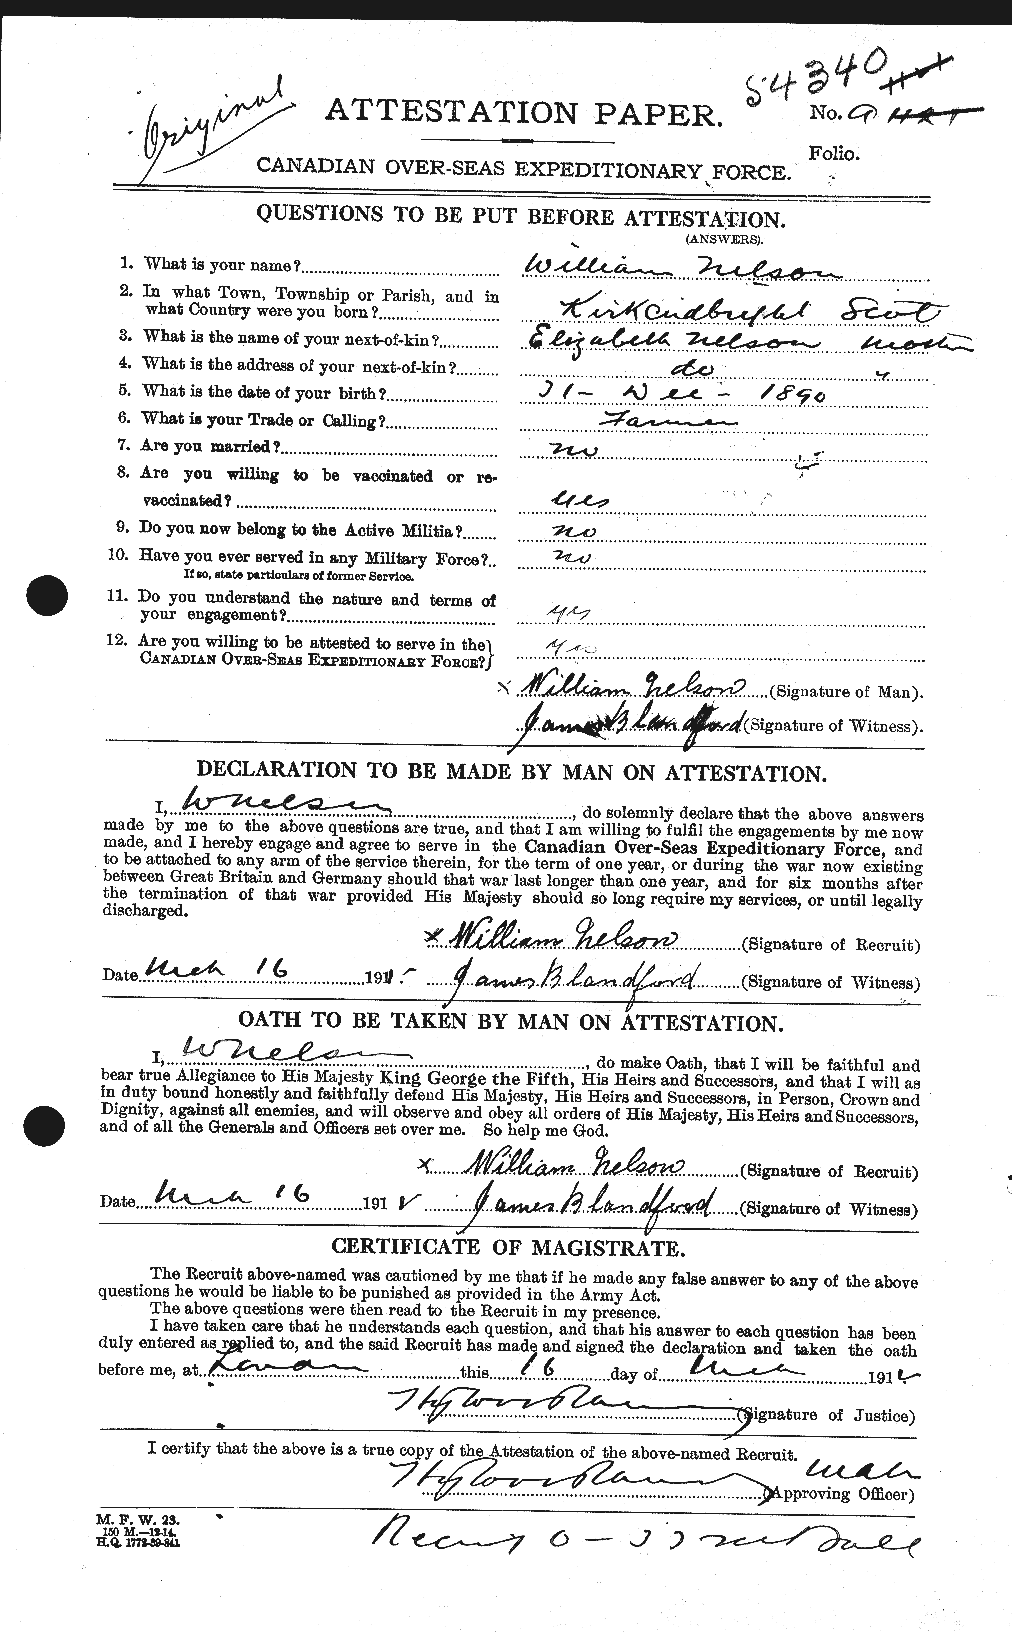 Original
54340
ATTESTATION PAPER.
No. A
Folio.
CANADIAN OVER-SEAS EXPEDITIONARY FORCE.
QUESTIONS TO BE PUT BEFORE ATTESTATION.
(ANSWERS).
1. What is your name? William Nelson
2. In what Town, Township or Parish, and in
what Country were you born? Kirkcudbright Scot
3. What is the name of your next-of-kin? Elizabeth Nelson Mother
4. What is the address of your next-of-kin? do
5. What is the date of your birth? 31 - Dec - 1890
6. What is your Trade or Calling? Farmer
7. Are you married? no
8. Are you willing to be vaccinated or re-
vaccinated? Yes
9. Do you now belong to the Active Militia? no
10. Have you ever served in any Military Force? no
If so, state particulars of former Service.
11. Do you understand the nature and terms of
your engagement? yes
12. Are you willing to be attested to serve in the
CANADIAN OVER-SEAS EXPEDITIONARY FORCE? yes
x William Nelson (Signature of Man).
James Blandford (Signature of Witness).
DECLARATION TO BE MADE BY MAN ON ATTESTATION.
I, W Nelson, do solemnly declare that the above answers
made by me to the above questions are true, and that I am willing to fulfil the engagements by me now
made, and I hereby engage and agree to serve in the Canadian Over-Seas Expeditionary Force, and
to be attached to any arm of the service therein, for the term of one year, or during the war now existing
between Great Britain and Germany should that war last longer than one year, and for six months after
the termination of that war provided His Majesty should so long require my services, or until legally
discharged.
x William Nelson (Signature of Recruit)
Date Mch 16 1915 James Blandford (Signature of Witness)
OATH TO BE TAKEN BY MAN ON ATTESTATION.
I, W Nelson, do make Oath, that I will be faithful and
bear true Allegiance to His Majesty King George the Fifth, His Heirs and Successors, and that I will as
in duty bound honestly and faithfully defend His Majesty, His Heirs and Successors, in Person, Crown and
Dignity, against all enemies, and will observe and obey all orders of His Majesty, His Heirs and Successors,
and of all the Generals and Officers set over me. So help me God.
x William Nelson (Signature of Recruit)
Date Mch 16 1915 James Blandford (Signature of Witness)
CERTIFICATE OF MAGISTRATE.
The Recruit above-named was cautioned by me that if he made any false answer to any of the above
questions he would be liable to be punished as provided in the Army Act.
The above questions were then read to the Recruit in my presence.
I have taken care that he understands each question, and that his answer to each question has been
duly entered as replied to, and the said Recruit has made and signed the declaration and taken the oath
before me, at London this 16 day of Mch 1915
(Signature of Justice)
I certify that the above is a true copy of the Attestation of the above-named Recruit.
(Approving Officer)
M. F. W. 23.
150 M.—12-14.
H.Q. 1772-39-841.